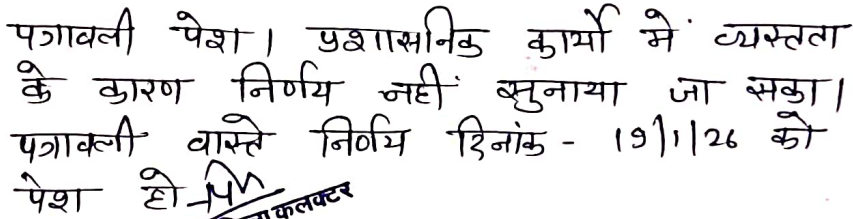 पत्रावली पेश। प्रशासनिक कार्यो में व्यस्तता
के कारण निर्णय नहीं सुनाया जा सका।
पत्रावली वास्ते निर्णय दिनांक - 19/1/26 को
पेश हो
कलक्टर